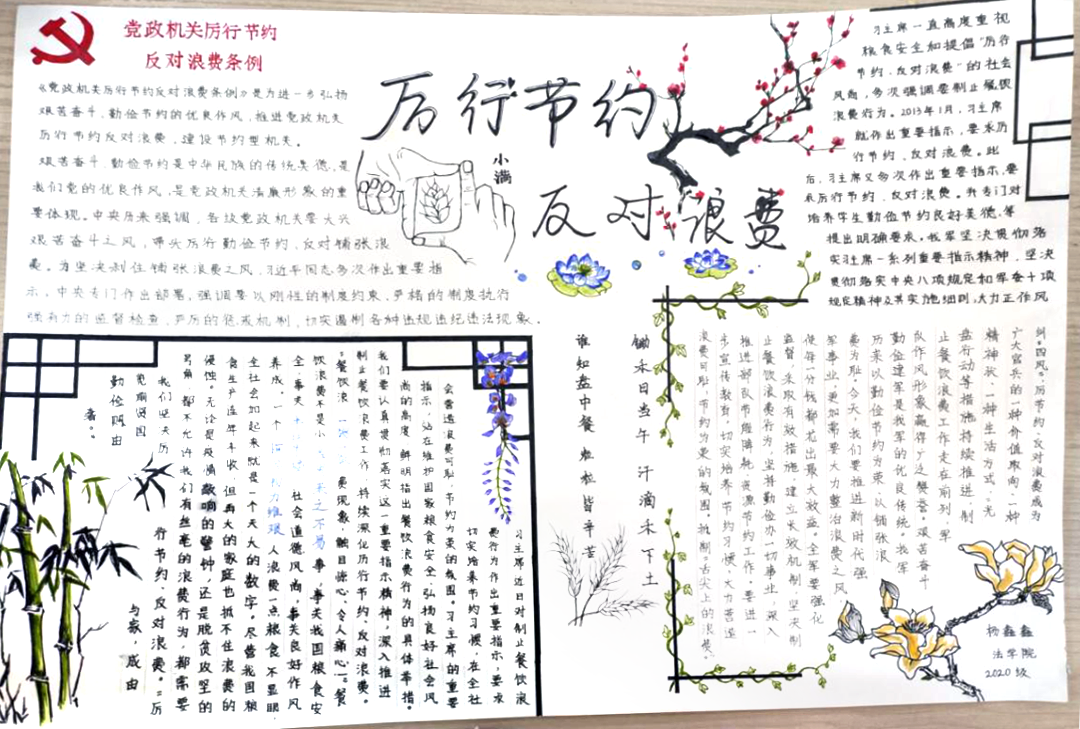 党政机关厉行节约
反对浪费条例
《党政机关厉行节约反对浪费条例》是为进一步弘扬
艰苦奋斗、勤俭节约的优良作风，推进党政机关
厉行节约反对浪费，建设节约型机关。
艰苦奋斗、勤俭节约是中华民族的传统美德，是
我们党的优良作风，是党政机关清廉形象的重
要体现。中央历来强调，各级党政机关要大兴
艰苦奋斗之风，带头厉行勤俭节约、反对铺张浪
费。为坚决刹住铺张浪费之风，习近平同志多次作出重要指
示，中央专门作出部署，强调要以刚性的制度约束、严格的制度执行
强有力的监督检查、严厉的惩戒机制，切实遏制各种违规违纪违法现象。
厉行节约
小满
反对浪费
习主席一直高度重视
粮食安全和提倡"厉行
节约、反对浪费"的社会
风尚，多次强调要制止餐饮
浪费行为。2013年1月，习主席
就作出重要指示，要求厉
行节约、反对浪费。此
后，习主席又多次作出重要指示，要
求厉行节约、反对浪费。并专门对
培养学生勤俭节约良好美德，等
提出明确要求。我军坚决贯彻落
实习主席一系列重要指示精神，坚决
贯彻落实中央八项规定和军委十项
规定精神及其实施细则，大力正作风
纠"四风"，厉节约、反对浪费成为
广大官兵的一种价值取向、一种
精神追、一种生活方式。"光
盘行动"等措施持续推进，制
止餐饮浪费工作走在前列，军
队作风形象赢得广泛赞誉。艰苦奋斗
勤俭建军是我军的优良传统。我军
历来以勤俭节约为荣、以铺张浪
费为耻。今天，我们要推进新时代强
军事业，更加需要大力整治浪费之风
使每一分钱都花出最大效益。全军要强化
监督，采取有效措施，建立长效机制，坚决制
止餐饮浪费行为，坚持勤俭办一切事业，深入
推进部队节能降耗、资源节约工作，要进一
步宣传教育，切实培养节约习惯，大力营造
浪费可耻、节约为荣的氛围。抵制"舌尖上的浪费"。
锄禾日当午 汗滴禾下土
谁知盘中餐 粒粒皆辛苦
习主席近日对制止餐饮浪
费行为作出重要指示，要求
切实培养节约习惯，在全社
会营造浪费可耻、节约为荣的氛围。习主席的重要
指示，站在维护国家粮食安全、弘扬良好社会风
尚的高度，鲜明指出餐饮浪费行为的具体举措。
我们要认真贯彻落实这一重要指示精神，深入推进
制止餐饮浪费工作，持续深化厉行节约、反对浪费。
全社会加起来就是一个天大的数字。尽管我国粮
食生产连年丰收，但再大的家庭也抵不住浪费的
侵蚀。无论是疫情敲响的警钟，还是脱贫攻坚的
号角，都不允许我们有丝毫的浪费行为，都需要
我们坚决厉
行节约、反对浪费。"历
览前贤国
与家，成由
勤俭败由
奢。"
杨鑫鑫
法学院
2020级